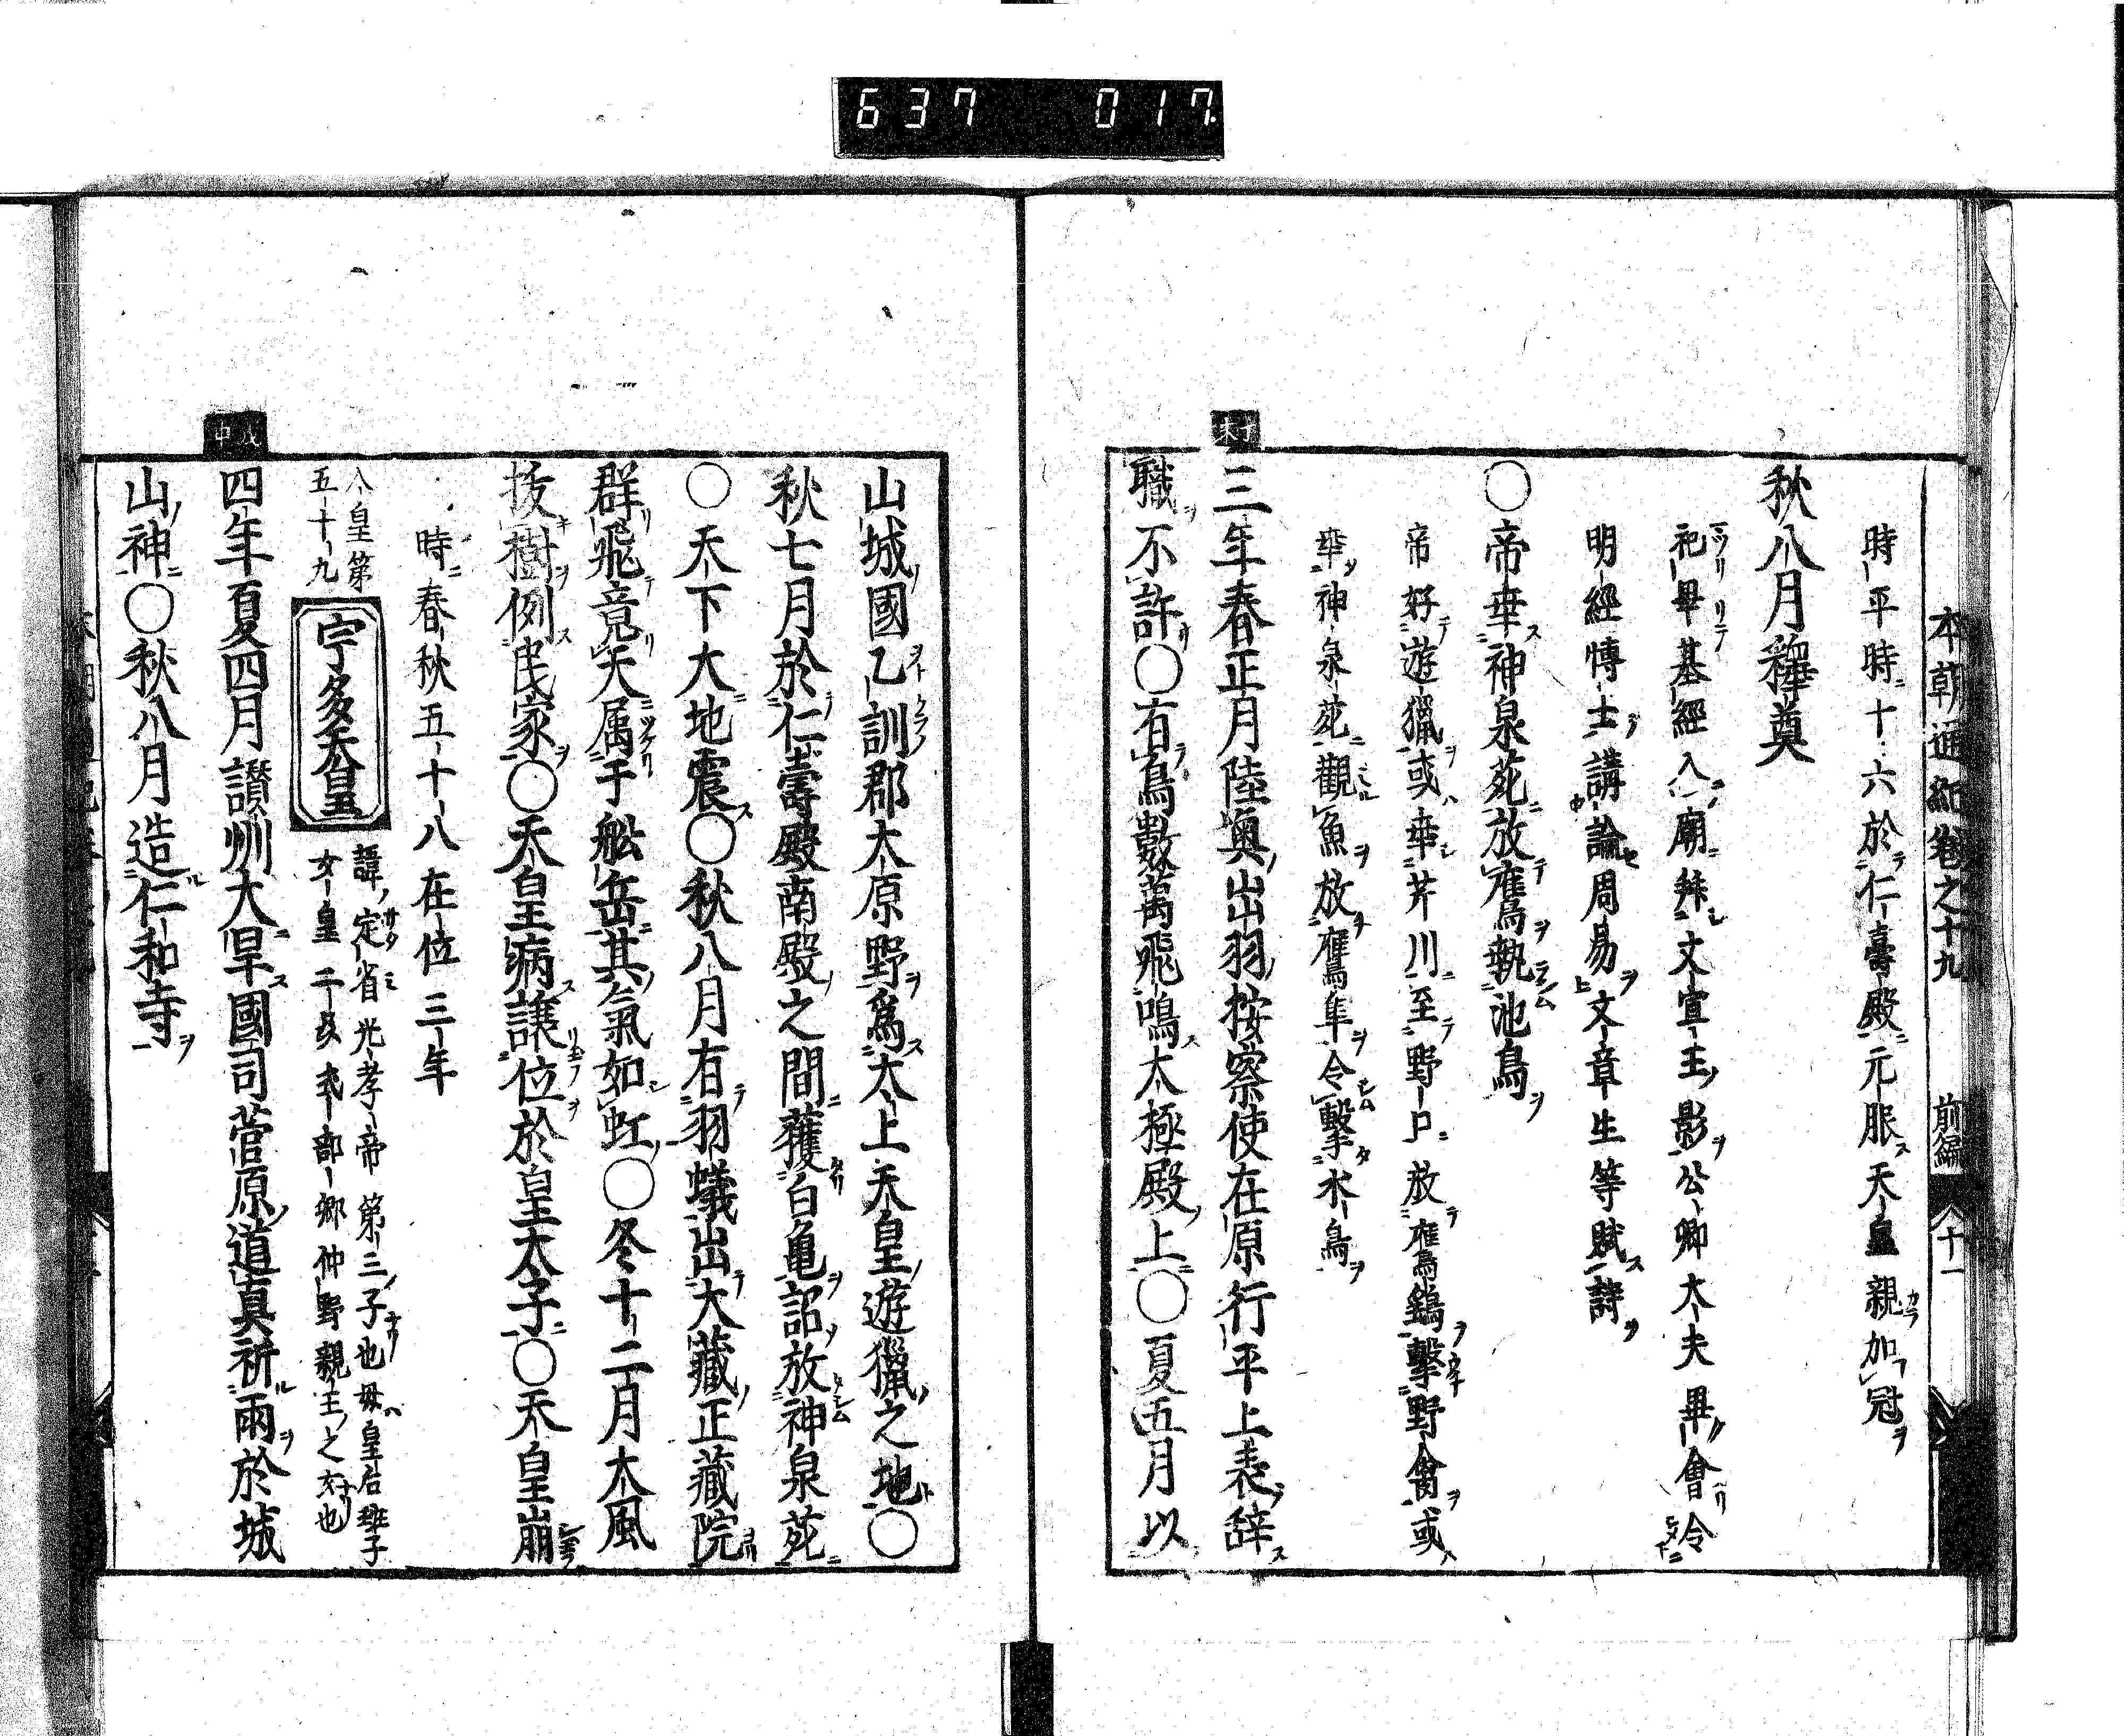 637 017
本朝通紀卷之十九 前編 十一
時平時十六於仁壽殿元服天皇親加冠
秋八月釋奠
祀畢基經入廟拜文宣王影公卿大夫畢會令
明經博士講論周易文章生等賦詩
○帝幸神泉苑放鷹執池鳥
帝好遊獵或幸芹川至野口放鷹鷂擊野禽或
幸神泉苑觀魚放鷹隼令擊水鳥
丁未
三年春正月陸奧出羽按察使在原行平上表辞
職不許○有鳥數萬飛鳴太極殿上○夏五月以
山城國乙訓郡大原野爲太上天皇遊獵之地○
秋七月於仁壽殿南殿之間獲白亀詔放神泉苑
○天下大地震○秋八月有羽蟻出大藏正藏院
群飛竟天属于舩岳其氣如虹○冬十二月大風
抜樹例民家○天皇病譲位於皇太子○天皇崩
時春秋五十八在位三年
人皇第五十九
宇多天皇
諱定省光孝帝第三子也母皇后班子
女皇二品式部卿仲野親王之女也
戊申
四年夏四月讃州大旱國司菅原道真祈雨於城
山神○秋八月造仁和寺